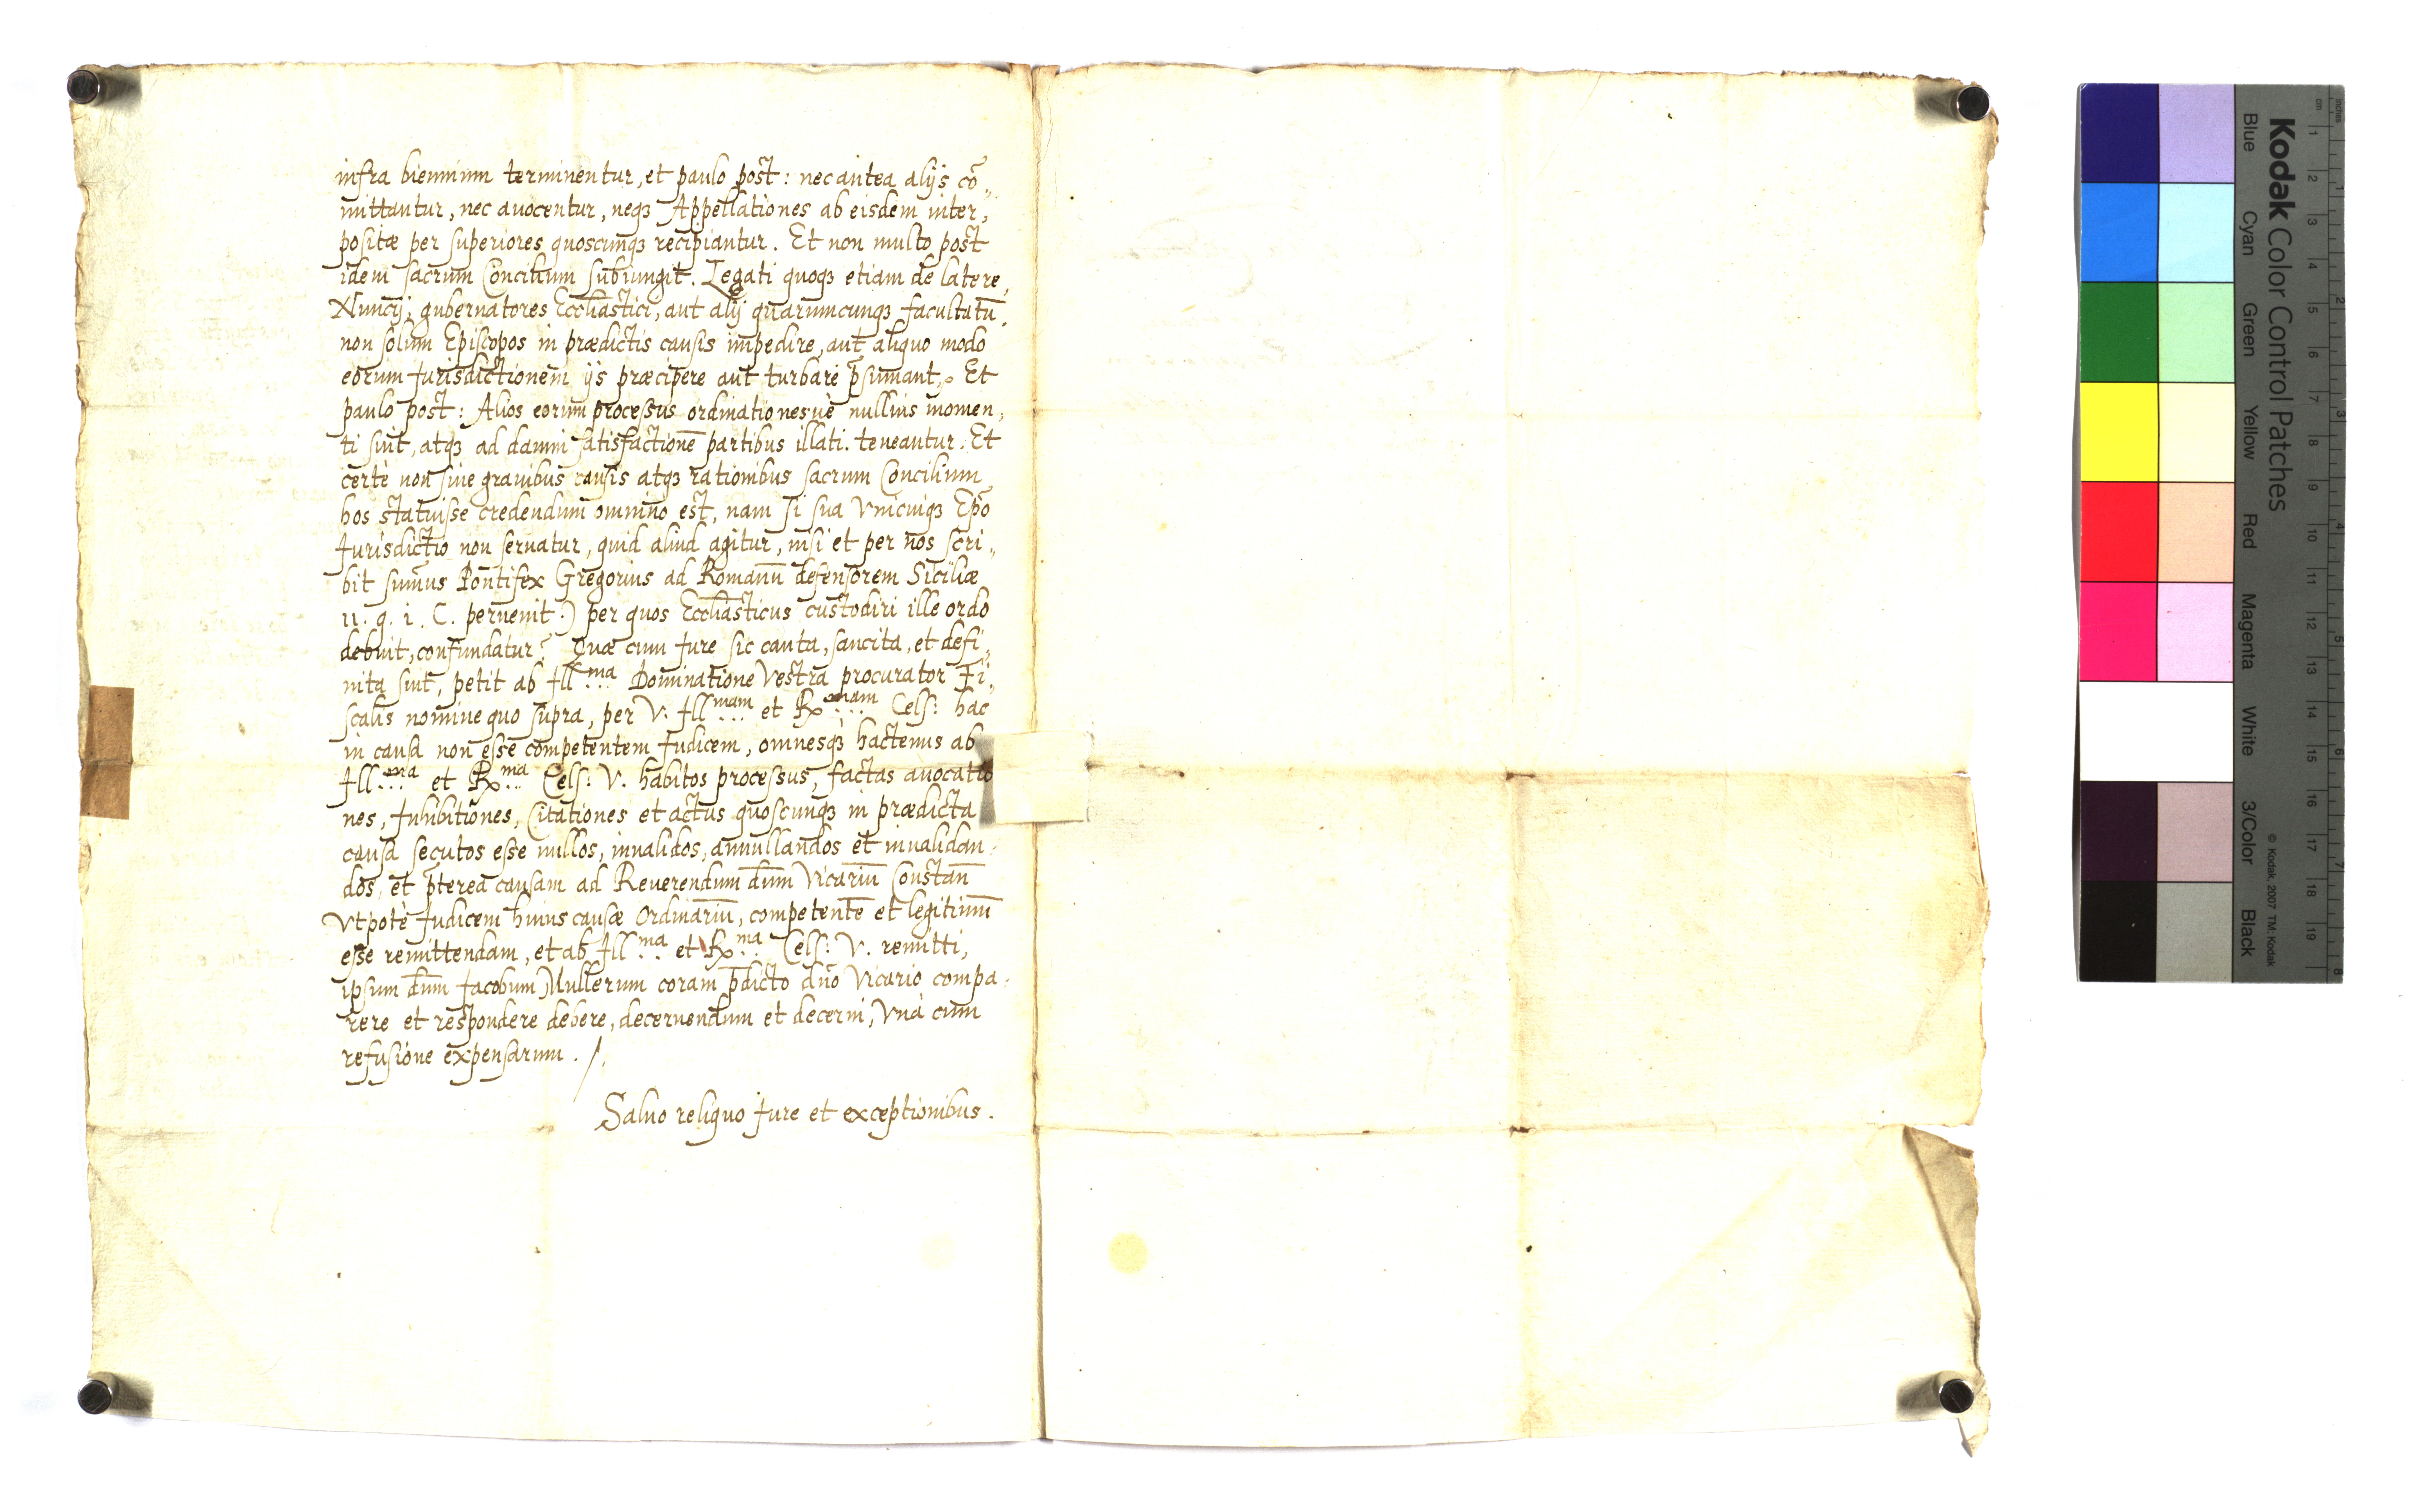 infra biennium terminentur, et paulo post: nec antea alijs cõ„
mittantur, nec auocentur, neqȝ Appellationes ab eisdem inter„
positæ per superiores quoscunqȝ recipiantur. Et non multo post
idem sacrum Concilium subiungit. Legati quoqȝ etiam de latere,
Nuncij, gubernatores Eccl̃iastici, aut alij quarumcunqȝ facultatũ,
non solùm Episcopos in prædictis causis impedire, aut aliquo modo
eorum Jurisdictionem ijs præcipere aut turbare p̃sumant. Et
paulo post: Alios eorum processus ordinationesuè nullius momen„
ti sint, atqȝ ad damni satisfactionẽ partibus illati teneantur. Et
certè non sine grauibus causis atqȝ rationibus sacrum Concilium
hos statuisse credendum omnino est, nam si sua Vnicuiqȝ Ep̃o
Jurisdictio non seruatur, quid aliud agitur, nisi et per nos scri„
bit sum̃us Pontifex Gregorius ad Romanũ defensorem Siciliæ
11. q. 1. C. peruenit:) per quos Eccl̃iasticus custodiri ille ordo
debuit, confundatur? Quæ cum Jure sic cauta, sancita, et defi„
nita sint, petit ab Jll:ma Dominatione Vestra procurator Fi„
scalis nomine quo supra, per V. Jll:mam et Rx:mam Cels: hac
in causa non esse competentem Judicem, omnesqȝ hactenus ab
Jll:ma et Rx:ma Cels: V. habitos processus, factas auocatio
nes, Jnhibitiones, Citationes et actus quoscunqȝ in prædicta
causa secutos esse nullos, inualidos, annullandos et inualidan„
dos, et p̃terea causam ad Reuerendum dñm Vicariũ Constan̄
Vtpotè Judicem huius causæ Ordinariũ, competentẽ et legitimũ
esse remittendam, et ab Jll:ma et Rx:ma Cels: V. remitti,
ipsum dñm Jacobum Mullerum coram p̃dicto dño Vicario compa„
rere et respondere debere, decernendum et decerni, Vnà cum
refusione expensarum. /.
Saluo reliquo Jure et exceptionibus.
Kodak Color Control Patches
Blue Cyan Green Yellow Red Magenta White 3/Color Black
© Kodak, 2007 TM: Kodak
cm 1 2 3 4 5 6 7 8 9 10 11 12 13 14 15 16 17 18 19
inches 1 2 3 4 5 6 7 8